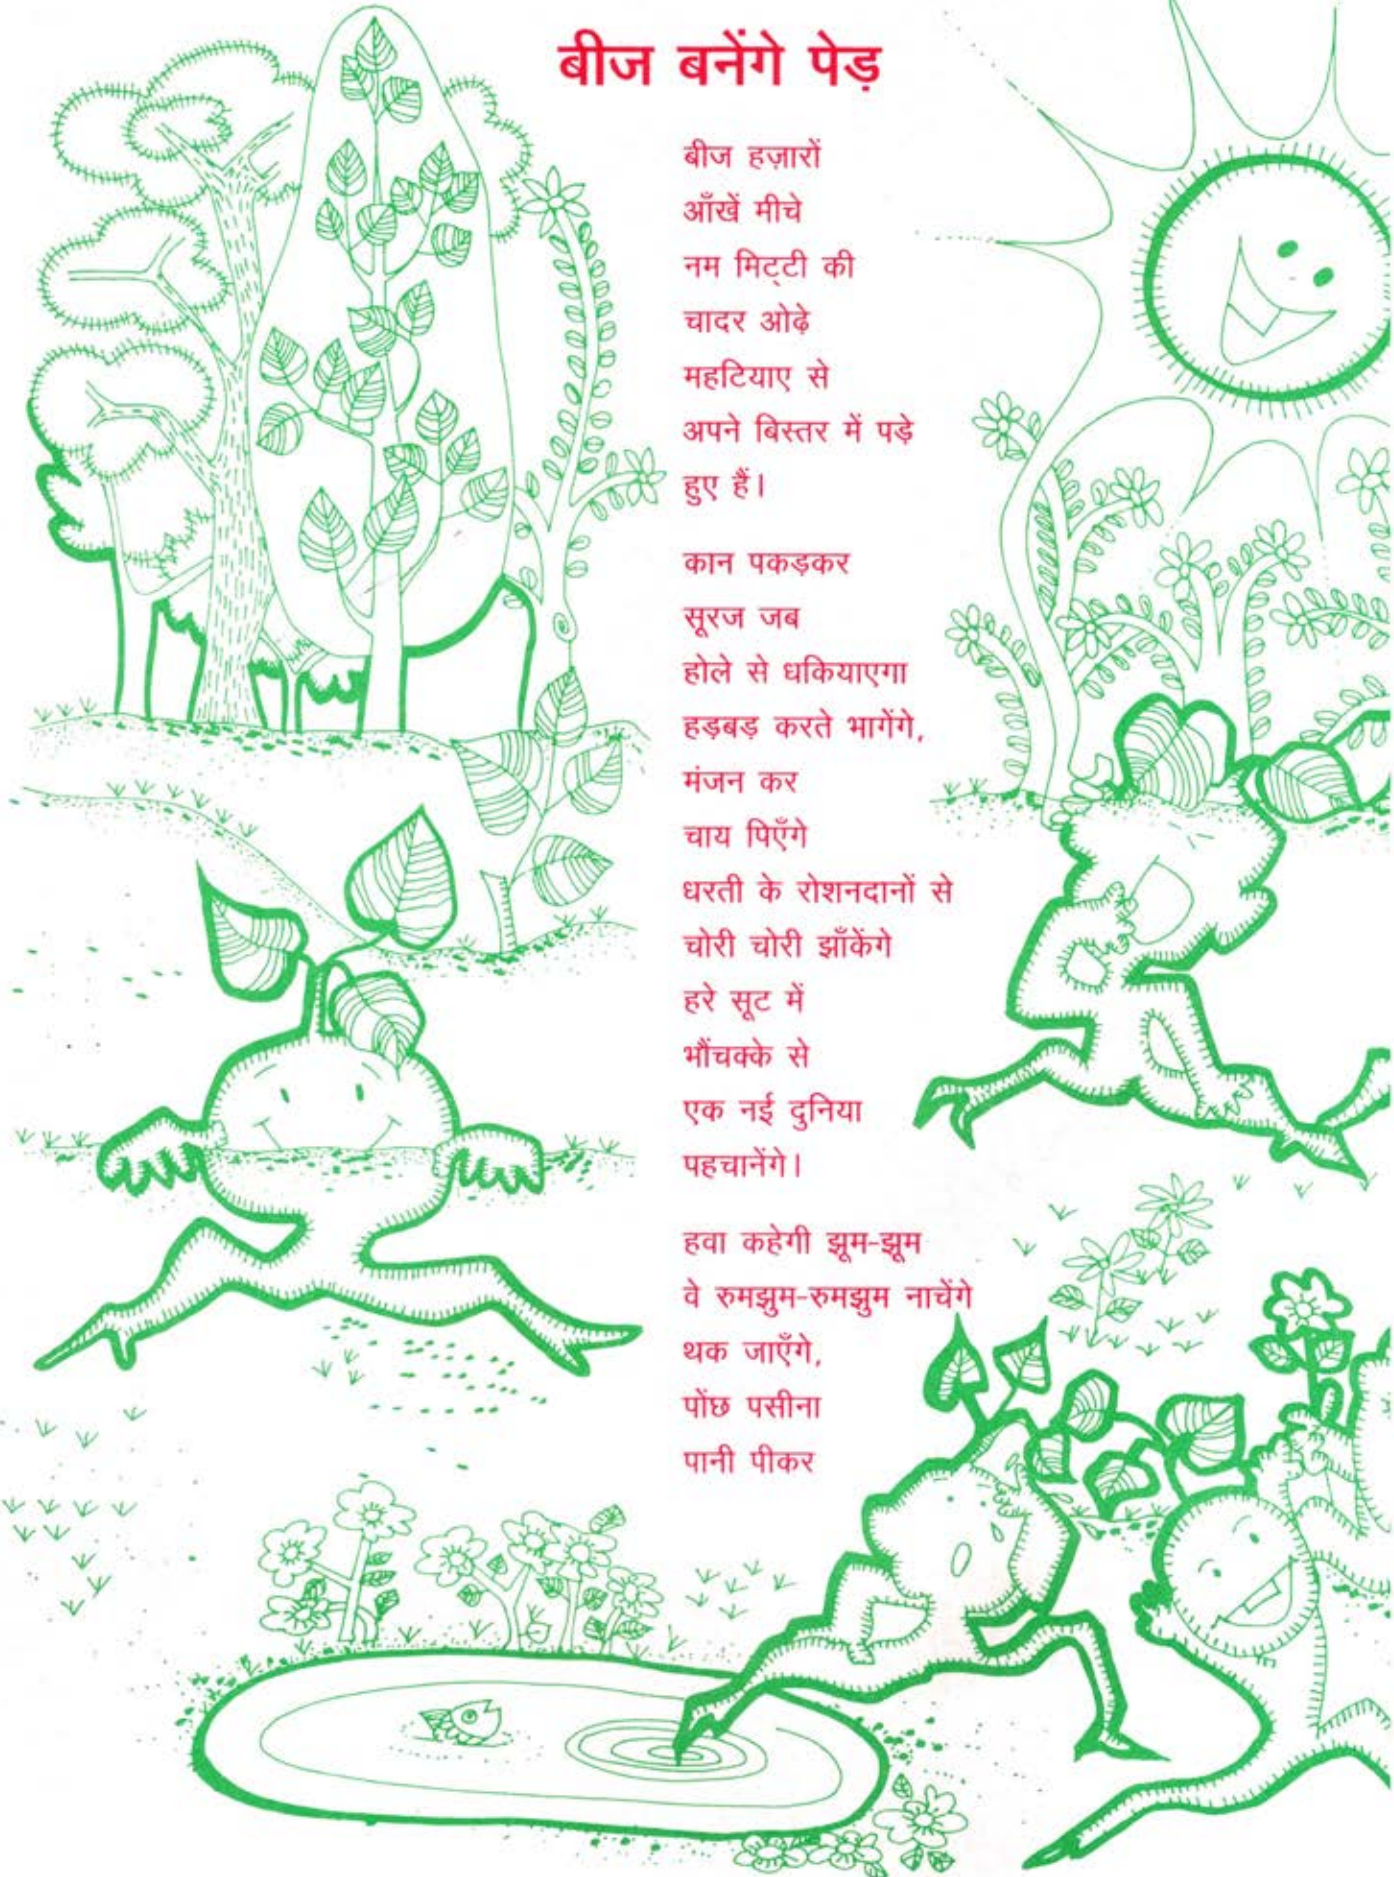 बीज बनेंगे पेड़
बीज हज़ारों
आँखें मीचे
नम मिट्‌टी की
चादर ओढ़े
महटियाए से
अपने बिस्तर में पड़े
हुए हैं।
कान पकड़कर
सूरज जब
होले से धकियाएगा
हड़बड़ करते भागेंगे,
मंजन कर
चाय पिएँगे
धरती के रोशनदानों से
चोरी चोरी झाँकेंगे
हरे सूट में
भौंचक्के से
एक नई दुनिया
पहचानेंगे।
हवा कहेगी झूम-झूम
वे रुमझुम-रुमझुम नाचेंगे
थक जाएँगे,
पोंछ पसीना
पानी पीकर